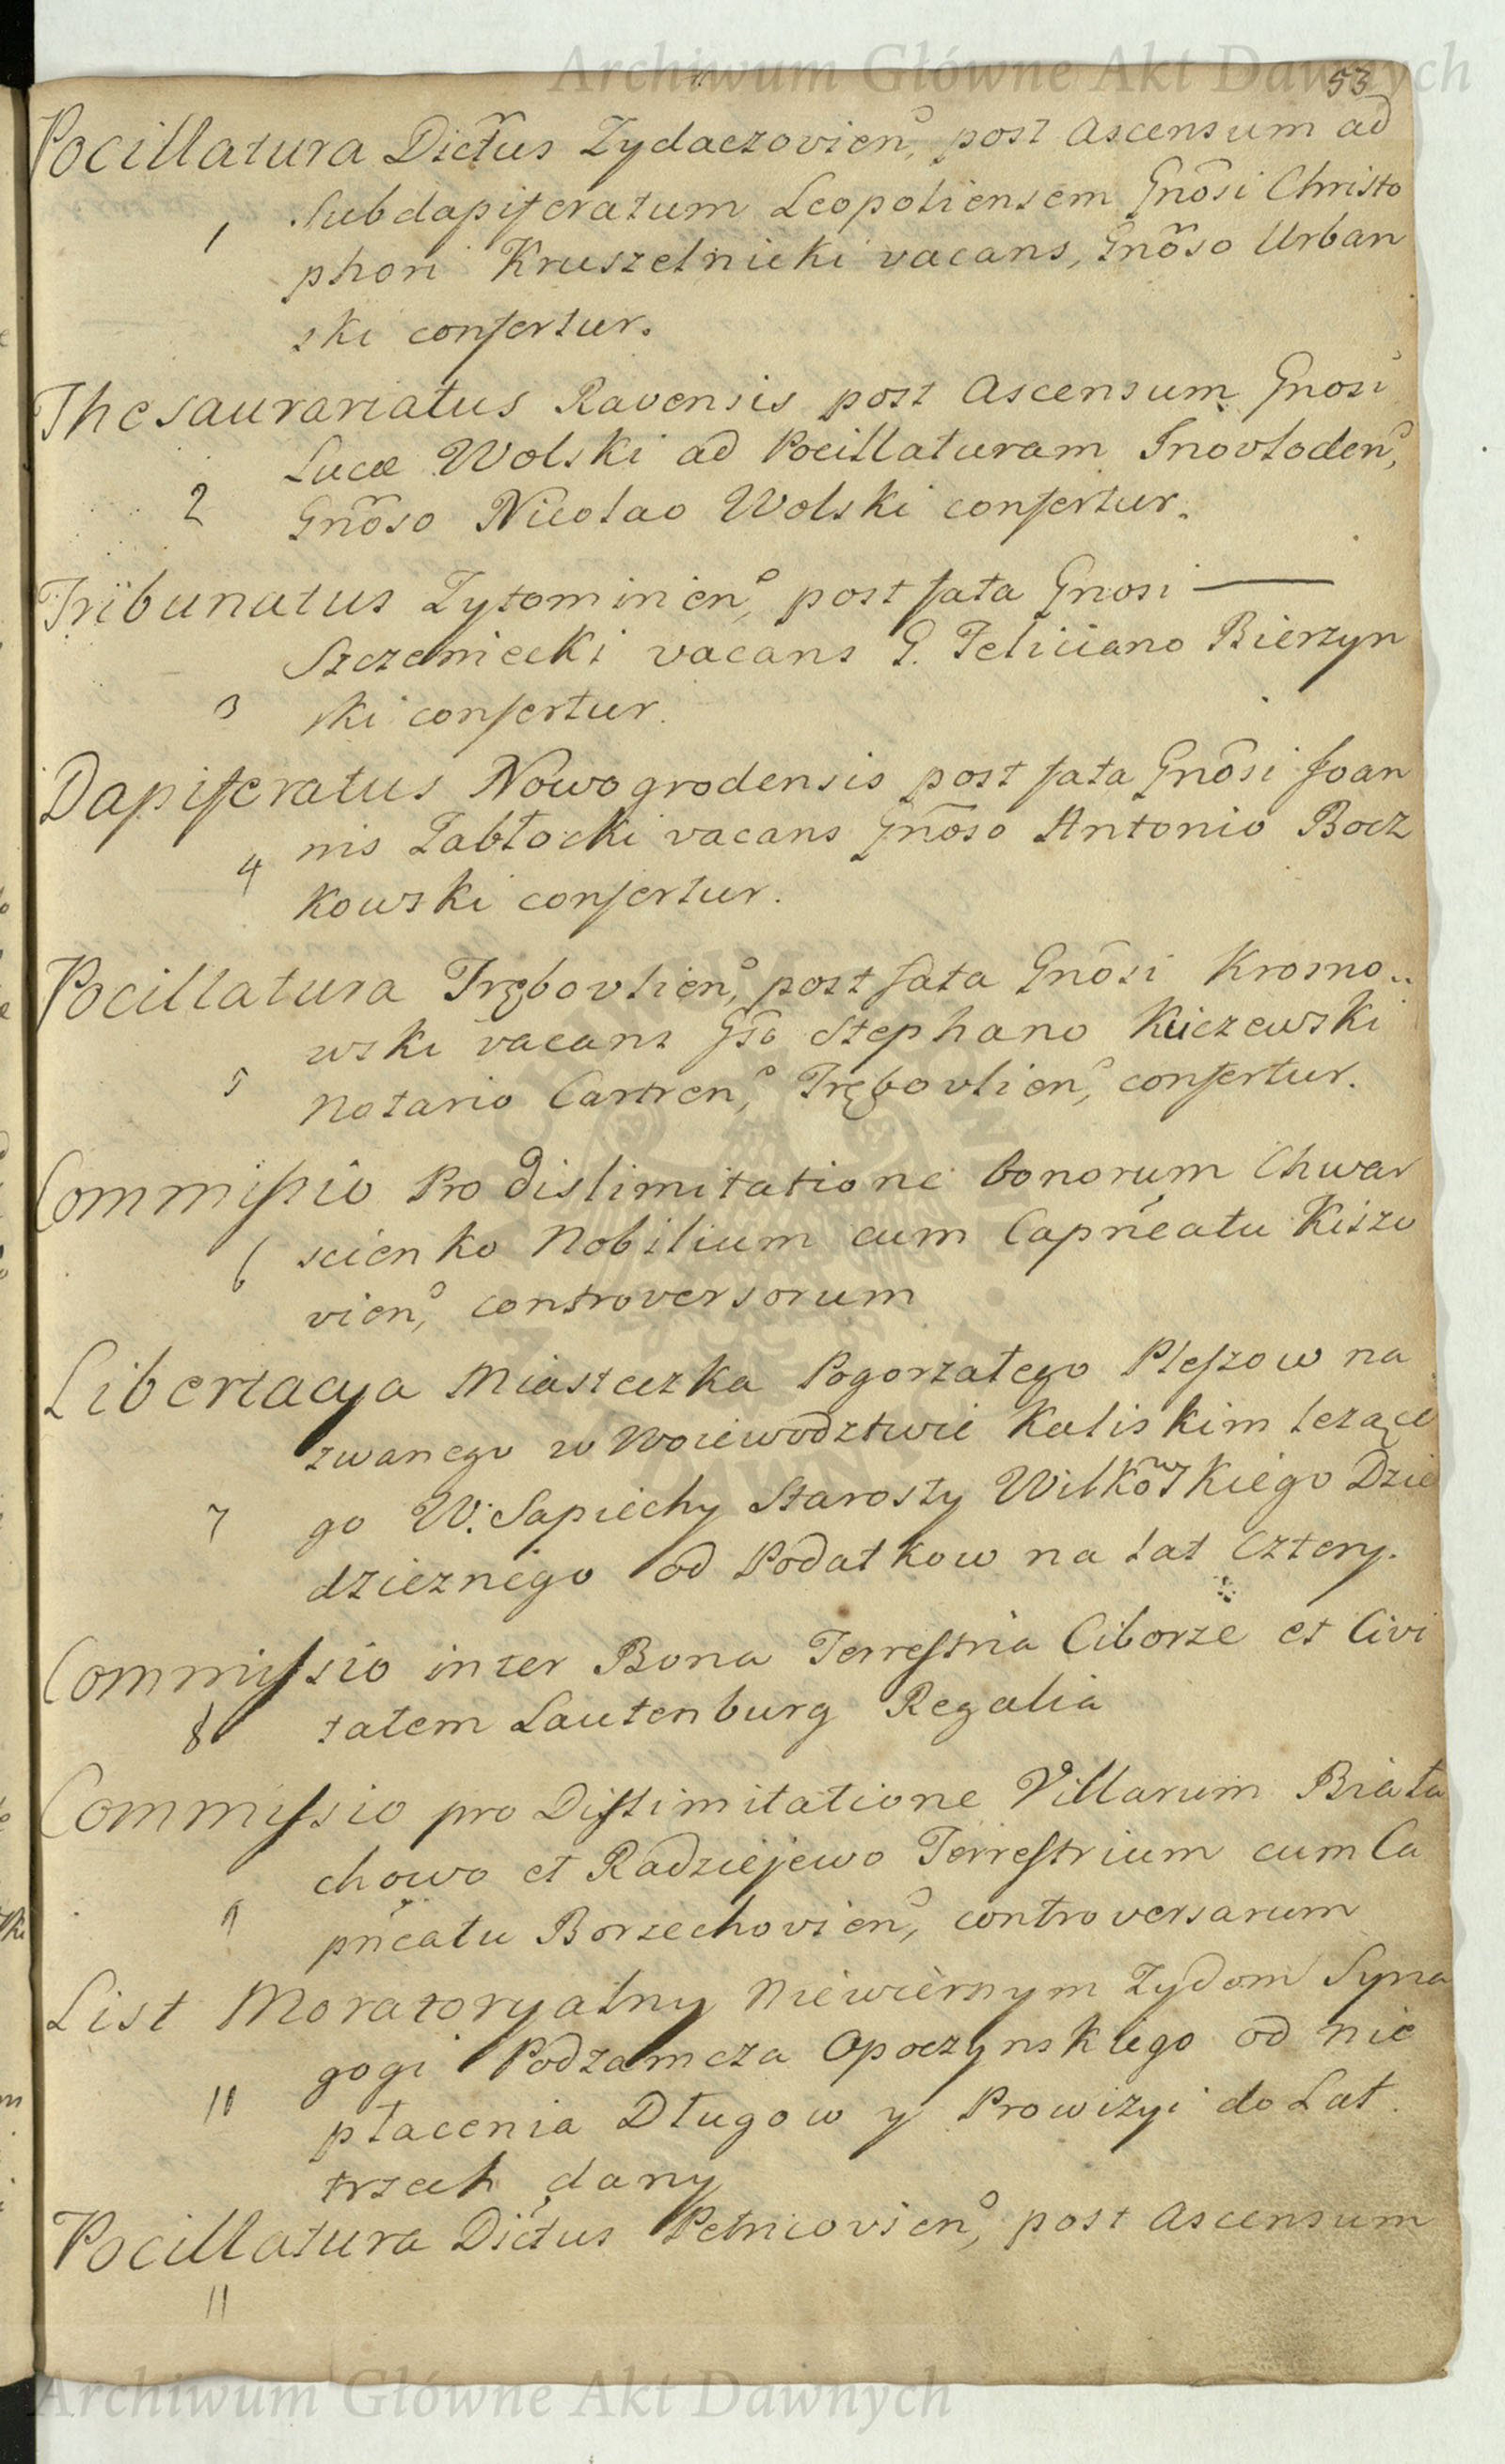 Archiwum Główne Akt Dawnych
53
Pocillatura Dictus Zydaczovien, post Ascensum ad
Subdapiferatum Leopoliensem Gnosi Christo
1
phori Kruszelnicki vacans, Gnoso Urban
ski confertur.
Thesaurariatus Ravensis post Ascensum Gnosi
Lucæ Wolski ad Pocillaturam Inovloden,
2
Gnoso Nicolao Wolski confertur.
Tribunatus Zytominien, post fata Gnosi —
Szczeniecki vacans G. Feliciano Bierzyn
3
ski confertur.
Dapiferatus Nowogrodensis post fata Gnosi Joan
nis Zabłocki vacans Gnoso Antonio Bocz
4
kowski confertur.
Pocillatura Trębovlien, post fata Gnosi Krosno..
wski vacans Gso Stephano Kuczewski
5
Notario Castren, Trębovlien, confertur.
Commissio Pro dislimitatione bonorum Chwar
scienko Nobilium cum Capneatu Kiszo
6
vien, controversorum
Libertacya Miasteczka Pogorzałego Pleszow na
zwanego w Woiewodztwie Kaliskim lezące
7
go W: Sapiehy Starosty Wilkowskiego Dzie
dzicznego od Podatkow na lat cztery.
Commissio inter Bona Terrestria Ciborze et Civi
8
tatem Lautenburg Regalia
Commissio pro Dislimitatione Villarum Biała
chowo et Radziejewo Terrestrium cum Ca
9
pneatu Borzechovien, controversarum
List Moratoryalny Niewiernym Zydom Syna
gogi Podzamcza Opoczynskiego od nie
10
płacenia Długow y Prowizyi do Lat
trzech dany
Pocillatura Dictus Petricovien, post Ascensum
11
Archiwum Główne Akt Dawnych